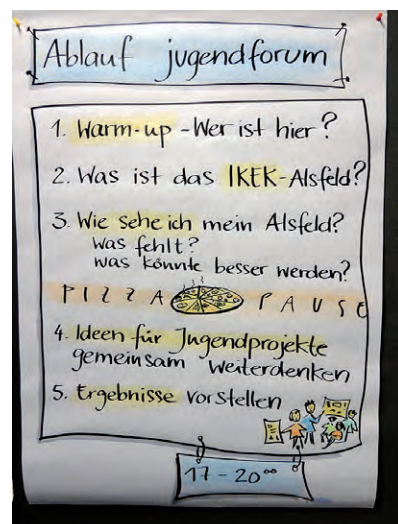 Ablauf jugendforum
1. Warm-up - Wer ist hier?
2. Was ist das IKEK-Alsfeld?
3. Wie sehe ich mein Alsfeld?
was fehlt?
was könnte besser werden?
PIZZA PAUSE
4. Ideen für Jugendprojekte
gemeinsam weiterdenken
5. Ergebnisse vorstellen
17 - 20⁰⁰